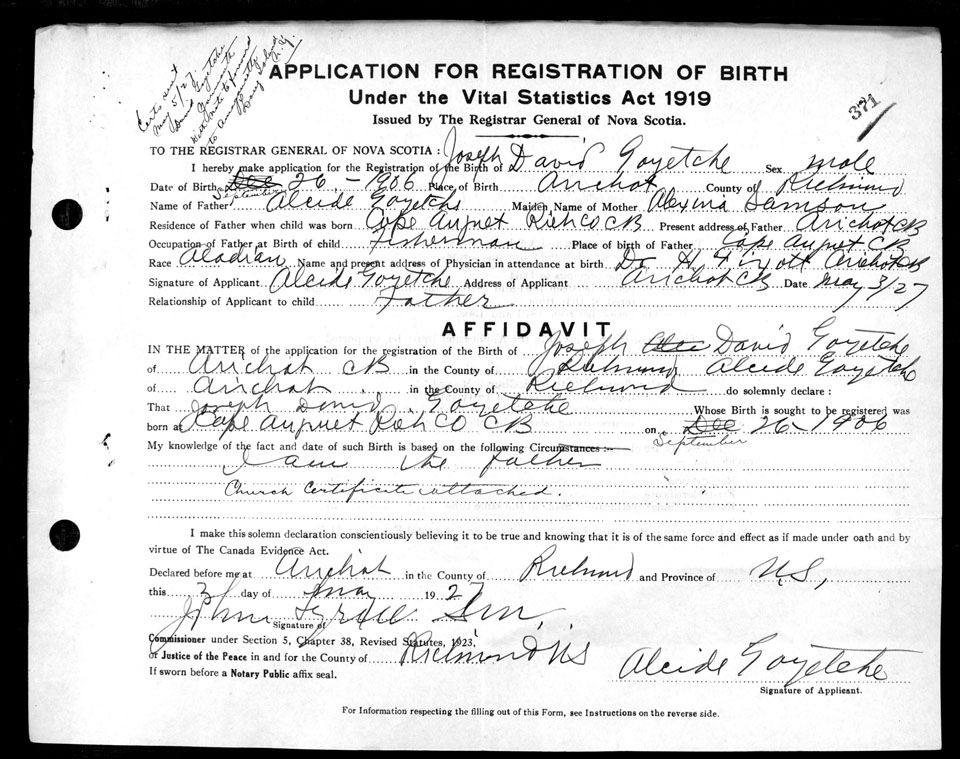 Certs sent
May 5/27
David Goyetche
with note to forward
to
Long Island
N.Y.
APPLICATION FOR REGISTRATION OF BIRTH
Under the Vital Statistics Act 1919
371
Issued by The Registrar General of Nova Scotia.
TO THE REGISTRAR GENERAL OF NOVA SCOTIA:
I hereby make application for the Registration of the Birth of Joseph David Goyetche Sex male
Date of Birth Dec 26 - 1906 Place of Birth Arichat County of Richmond
September
Name of Father Alcide Goyetche Maiden Name of Mother Alexina Samson
Residence of Father when child was born Cape Auguet Rich CO CB Present address of Father Arichat CB
Occupation of Father at Birth of child Fisherman Place of birth of Father Cape Auguet CB
Race Acadian Name and present address of Physician in attendance at birth Dr. H. Arichat CB
Signature of Applicant Alcide Goyetche Address of Applicant Arichat CB Date May 3/27
Relationship of Applicant to child Father
AFFIDAVIT
IN THE MATTER of the application for the registration of the Birth of Joseph David Goyetche
of Arichat CB in the County of Richmond Alcide Goyetche
of Arichat in the County of Richmond do solemnly declare:
That Joseph David Goyetche Whose Birth is sought to be registered was
born at Cape Auguet Rich CO CB on Dec 26-1906
September
My knowledge of the fact and date of such Birth is based on the following Circumstances:—
I am the father
Church Certificate attached.
I make this solemn declaration conscientiously believing it to be true and knowing that it is of the same force and effect as if made under oath and by
virtue of The Canada Evidence Act.
Declared before me at Arichat in the County of Richmond and Province of N.S,
this 3 day of May 1927
John Sen,
Signature of
Commissioner under Section 5, Chapter 38, Revised Statutes, 1923,
or Justice of the Peace in and for the County of Richmond NS
If sworn before a Notary Public affix seal.
Alcide Goyetche
Signature of Applicant.
For Information respecting the filling out of this Form, see Instructions on the reverse side.